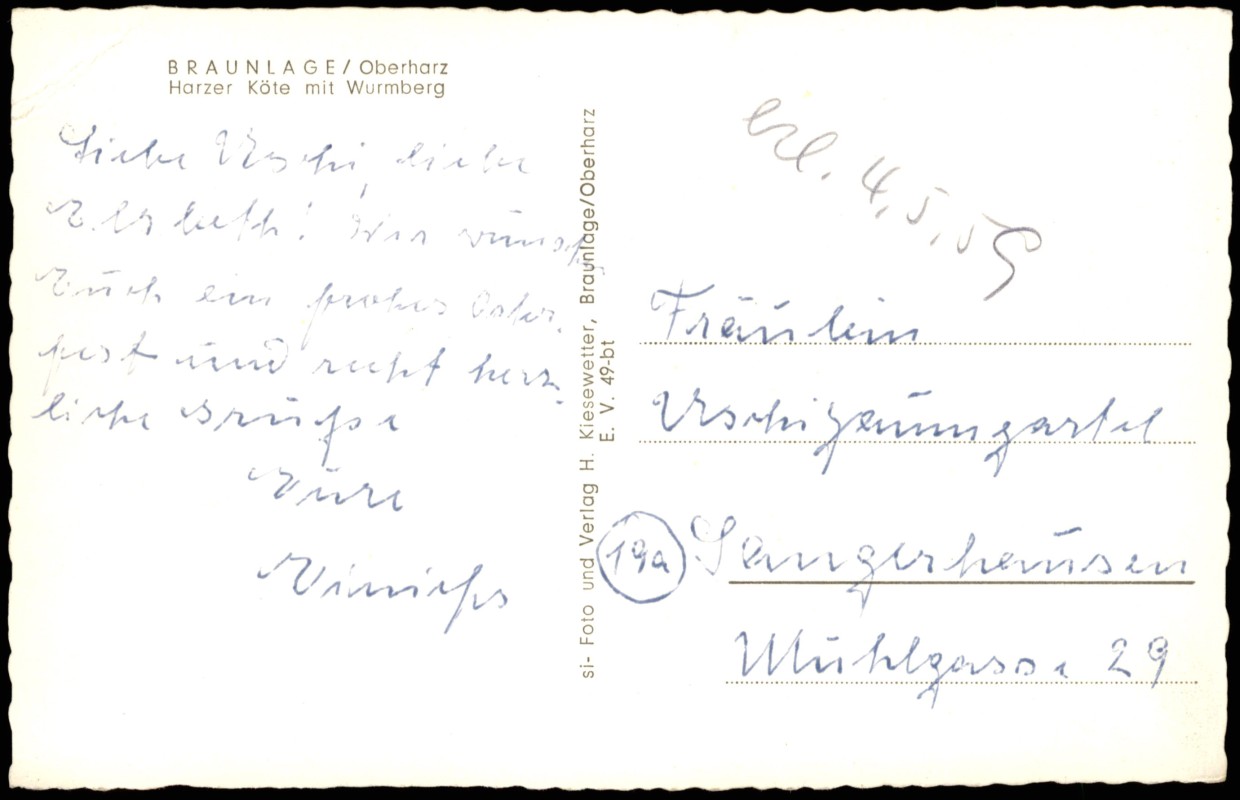 BRAUNLAGE/Oberharz
Harzer Köte mit Wurmberg
Liebe Uschi, liebe
Elsbeth! Wir wünschen
Euch ein frohes Oster-
fest und recht herz-
liche Grüße
Eure
si- Foto und Verlag H. Kiesewetter, Braunlage/Oberharz
E. V. 49-bt
erl. 4.5.59
Fräulein
Uschi Zaumgartel
19a Sangerhausen
Mühlgasse 29